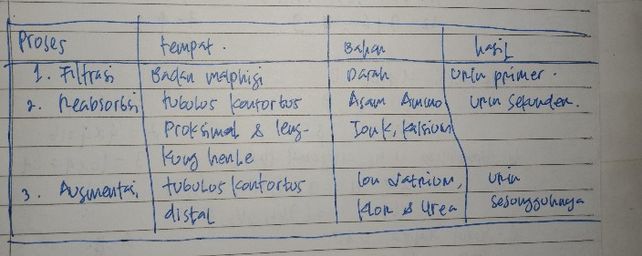 Proses tempat. Bahan hasil
1. Filtrasi Badan malphigi Darah Urin primer.
2. Reabsorbsi tubulos kontortos Asam Amino Urin sekunder.
Proksimal & leng- Ionik, kalsium
kung henle
3. Augmentasi tubulos kontortos Ion Natrium, Urin
distal Klor & Urea sesungguhnya